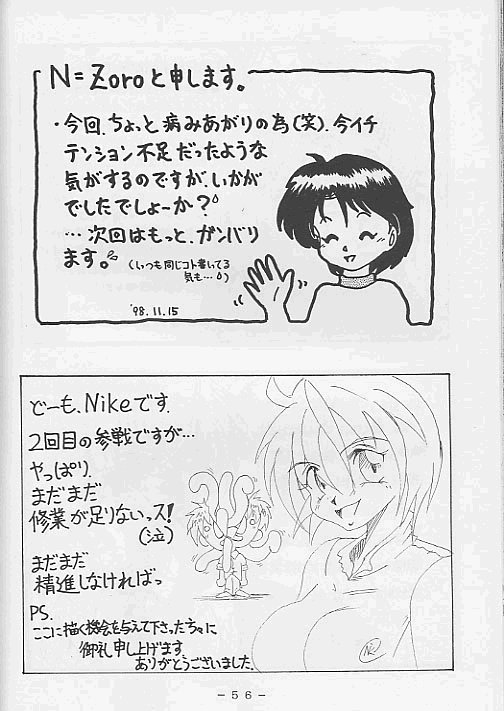 N=Zoroと申します。
・今回、ちょっと病みあがりの為(笑)、今イチ
テンション不足だったような
気がするのですが、いかが
でしたでしょーか?
…次回はもっと、ガンバり
ます。
(いつも同じコト書いてる
気も…)
'98.11.15
どーも、Nikeです.
2回目の参戦ですが…
やっぱり
まだまだ
修業が足りないっス!
(泣)
まだまだ
精進しなければっ
PS.
ここに描く機会を与えて下さった方々に
御礼申し上げます
ありがとうございました.
-56-